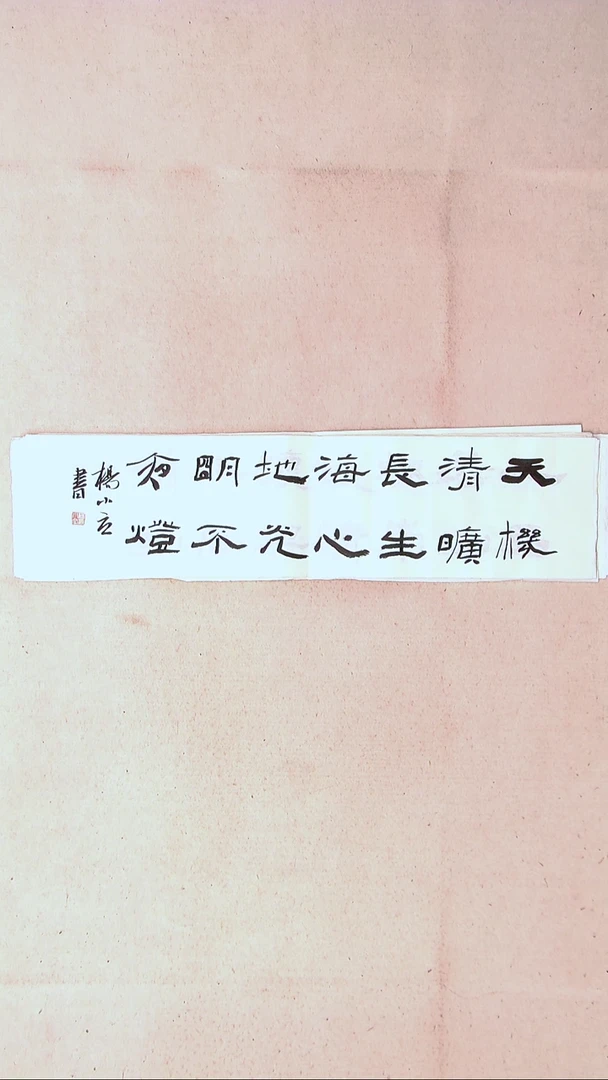 天機
清曠
長生
海心
地光
明不
夜燈
楊小
書